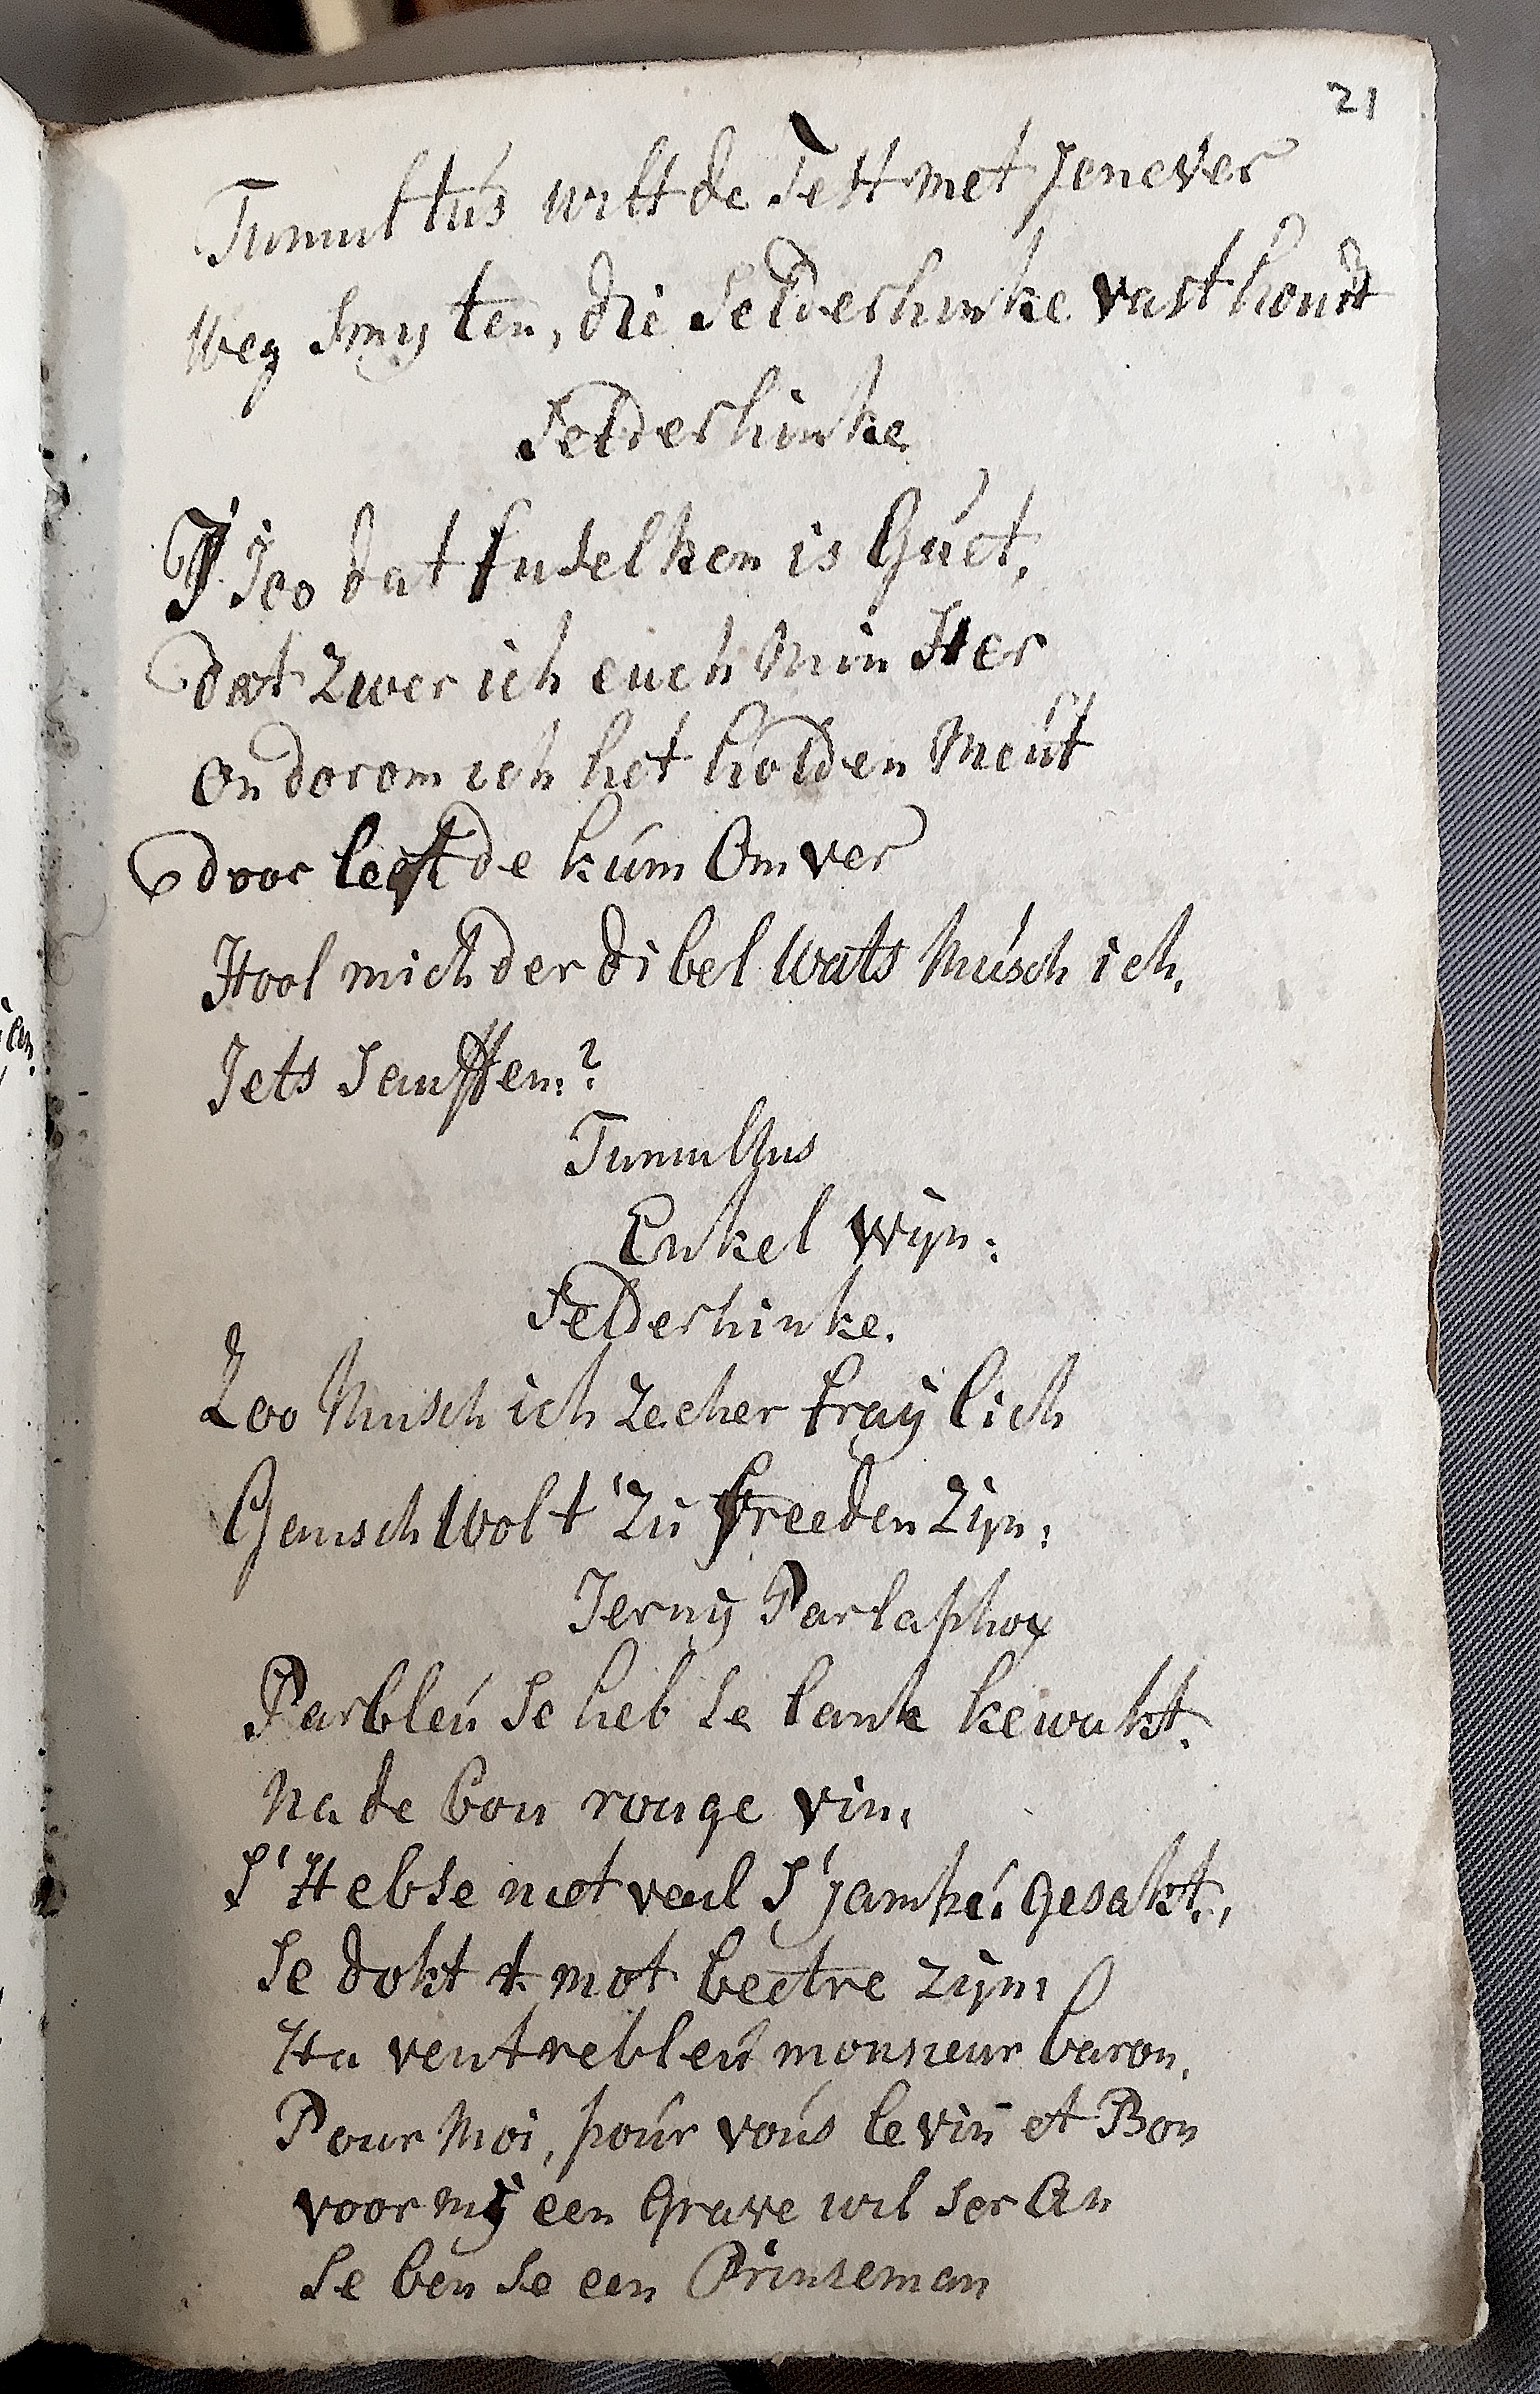 21
Tumultus wilt de Fets met Jenever
weg smyten, die Selderhinke vast houdt
Selderhinke
J Joo dat fuselken is Guet,
dat zwer ich euch Min Her
on dorom ich het holden Meut
door leefde kum Om ver
Hool mich der dibel wats Musch ich,
Jets Sauffen:?
Tumultus
Enkel wijn:
Selderhinke.
Zoo Musch ich zecher fraylich
Gansch wolt zu freeden zijn:
Jerny Parlaphox
Parbleu Se heb Se lank kewakt.
Na de bon rouge vin,
S'Hebse niet veul S'jamhé gesakt,
Se dokt t mot beetre zijn
Ha ventrebleu monsieur baron,
Pour Moi, pour vous le vin et Bon
voor mij een Grave wil Ser An
Se ben Se een Prinseman